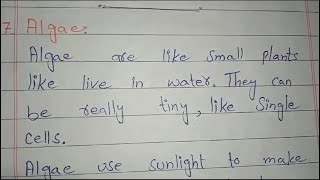 7. Algae:
Algae are like small plants
like live in water. They can
be really tiny, like Single
cells.
Algae use sunlight to make